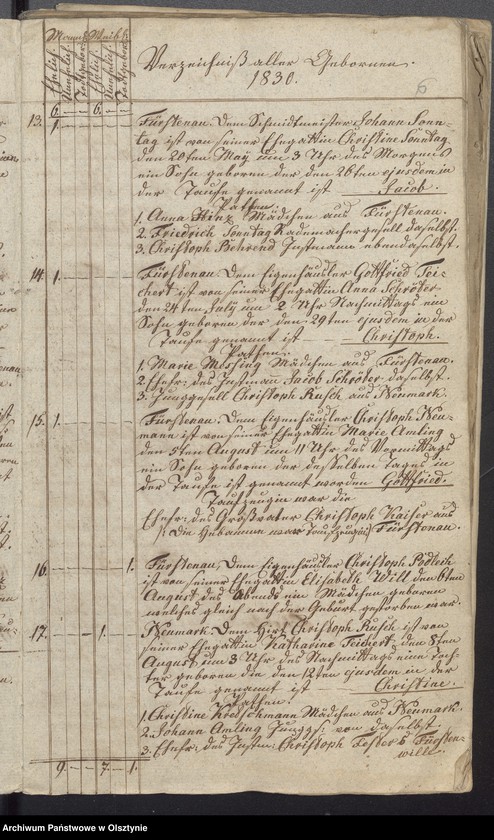 Verzeichniß aller Gebornen.
1830.
6
Männl. Weibl.
Ehelich. Unehelich. Todtgebor. Ehelich. Unehelich. Todtgebor.
6. 6.
13. 1
Fürstenau. Dem Schmidtmeister Johann Sonn-
tag ist von seiner Ehegattin Christine Sonntag
den 20ten May um 3 Uhr des Morgens
ein Sohn geboren der den 26ten ejusdem in
der Taufe genannt ist Jacob.
Pathen.
1. Anna Hinz Mädchen aus Fürstenau.
2. Friedrich Sonntag Rademachergesell daselbst.
3. Christoph Behrend Instmann ebendaselbst.
14. 1.
Fürstenau Dem Eigenkäthler Gottfried Tei-
chert ist von seiner Ehegattin Anna Schröter
den 24ten July um 2 Uhr Nachmittags ein
Sohn geboren der den 29ten ejusdem in der
Taufe genannt ist Christoph.
Pathen.
1. Marie Messing Mädchen aus Fürstenau.
2. Ehefr: des Instman Jacob Schröter daselbst.
3. Junggesell Christoph Rusch aus Neumark.
15. 1.
Fürstenau. Dem Eigenkäthler Christoph Neu-
mann ist von seiner Ehegattin Marie Amling
den 5ten August um 11 Uhr des Vormittags
ein Sohn geboren der desselben Tages in
der Taufe ist genannt worden Gottfried.
Taufzeugin war die
Ehefr: des Großvater Christoph Kaiser aus
(die Hebamme war Taufzeugin) Fürstenau.
16. 1.
Fürstenau, Dem Eigenkäthler Christoph Podlech
ist von seiner Ehegattin Elisabeth Will den 6ten
August des Abends ein Mädchen geboren
welches gleich nach der Geburt gestorben war.
17. 1.
Neumark. Dem Hirt Christoph Rusch ist von
seiner Ehegattin Katharine Teichert den 8ten
August um 3 Uhr des Nachmittags eine Toch-
ter geboren die den 12ten ejusdem in der
Taufe genannt ist Christine.
Pathen.
1. Christine Kretschmann Mädchen aus Neumark.
2. Johann Amling Junggs: von daselbst.
3. Ehefr: des Instm: Christoph Fürsten-
9. 7. 1.